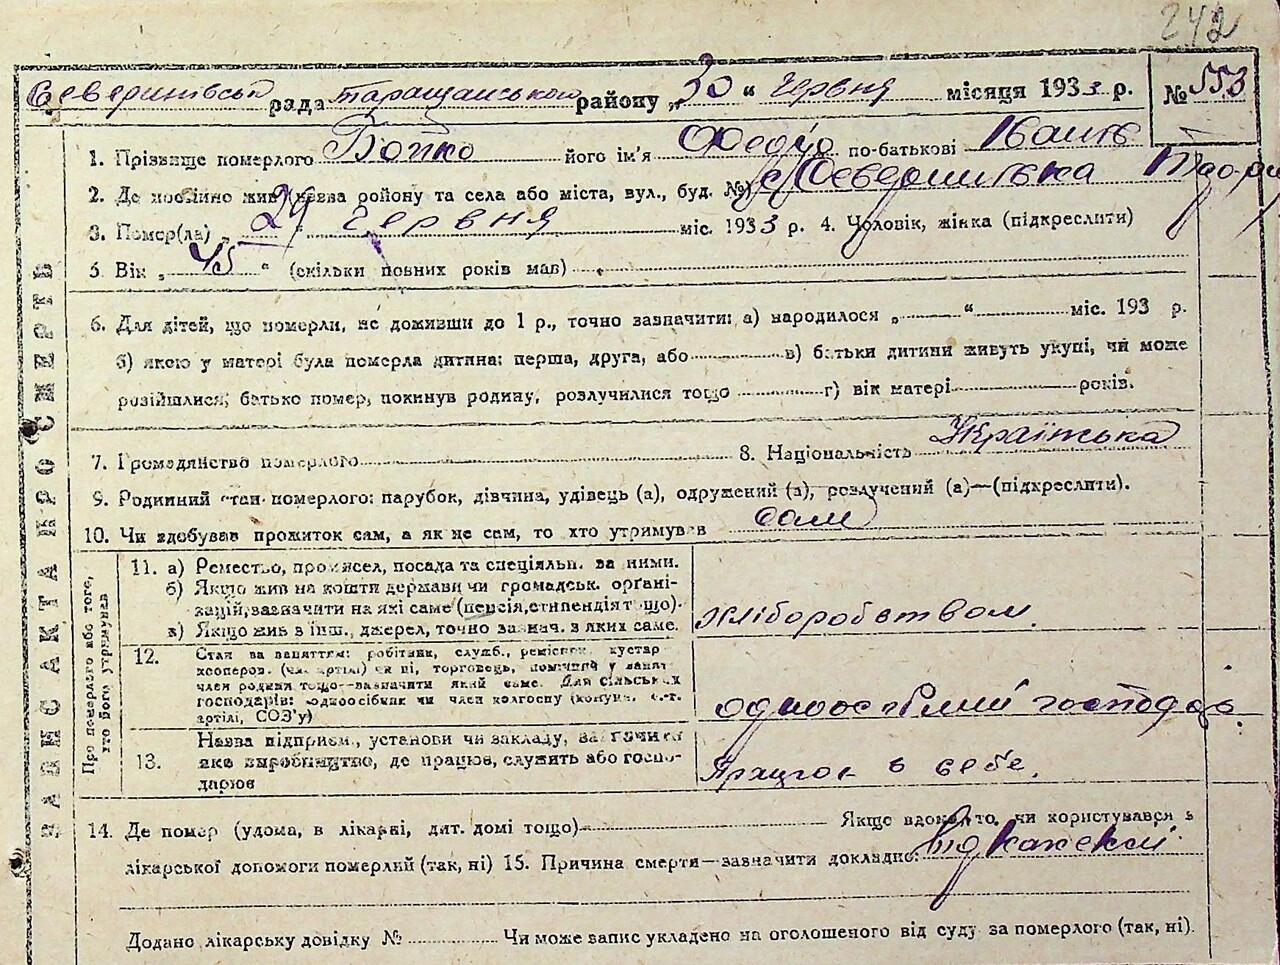 242
Северинівська рада Таращанського району „30“ червня місяця 1933 р. № 553
ЗАПИС АКТА ПРО СМЕРТЬ
1. Прізвище померлого Бойко його ім'я Федір по-батькові Іванів
2. Де постійно жив (назва району та села або міста, вул., буд. №) с Северинівка Тар. р.
3. Помер(ла) „ 29 “ червня міс. 1933 р. 4. Чоловік, жінка (підкреслити)
5. Вік „ 45 “ (скільки повних років мав)
6. Для дітей, що померли, не доживши до 1 р., точно зазначити: а) народилося „ “ міс. 193 р.
б) якою у матері була померла дитина: перша, друга, або в) батьки дитини живуть укупі, чи може
розійшлися; батько помер, покинув родину, розлучилися тощо г) вік матері років.
7. Громадянство померлого 8. Національність Українська
9. Родинний стан померлого: парубок, дівчина, удівець (а), одружений (а), розлучений (а)—(підкреслити).
10. Чи здобував прожиток сам, а як не сам, то хто утримував сам
Про померлого або того, хто його утримував
11. а) Ремество, промисел, посада та спеціяльн. за ними.
б) Якщо жив на кошти держави чи громадськ. орґані-
зацій, зазначити на які саме (пенсія, стипендія тощо).
в) Якщо жив з інш., джерел, точно зазнач. з яких саме.
хліборобством.
12. Стан за заняттям: робітник, служб., ремісник, кустар
кооперов. (чл. артілі) чи ні, торговець, помічний у занят.
член родини тощо—зазначити який саме. Для сільських
господарів: одноосібник чи член колгоспу (комуни, с.-г.
артілі, СОЗ'у)
одноосібний господар.
13. Назва підприєм., установи чи закладу, зазначити
яке виробництво, де працює, служить або госпо-
дарює
Працює в себе.
14. Де помер (удома, в лікарні, дит. домі тощо) Якщо вдома, то чи користувався з
лікарської допомоги померлий (так, ні) 15. Причина смерти—зазначити докладно: від кахексії.
Додано лікарську довідку № Чи може запис укладено на оголошеного від суду за померлого (так, ні).